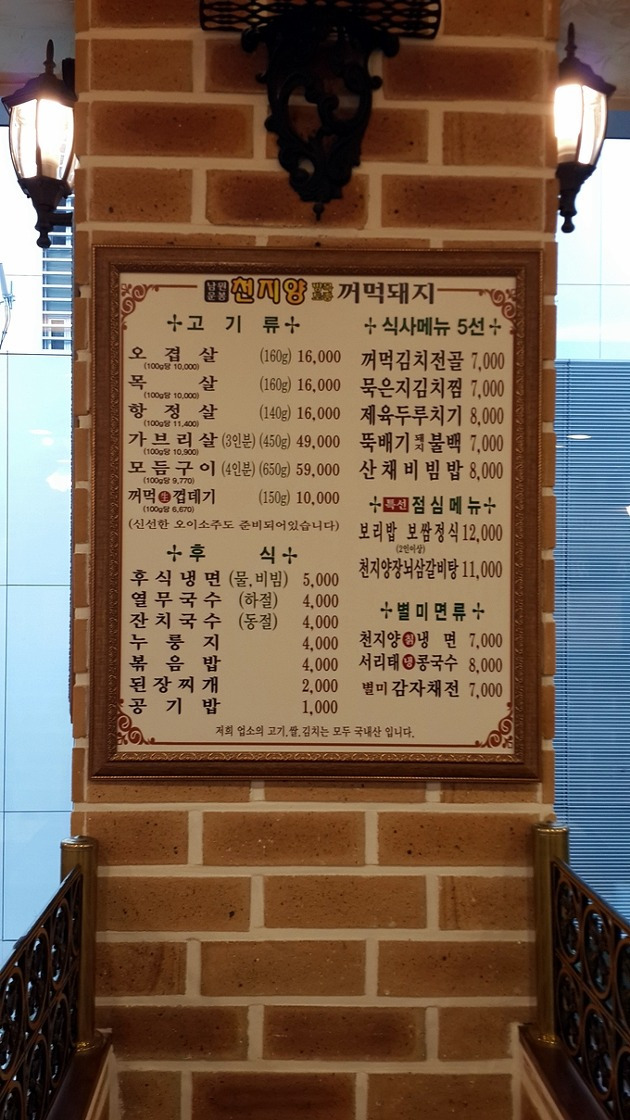 남원 운봉 천지양 꺼먹돼지
고기류
오겹살 (160g) 16,000
(100g당 10,000)
목살 (160g) 16,000
(100g당 10,000)
항정살 (140g) 16,000
(100g당 11,400)
가브리살 (3인분) (450g) 49,000
(100g당 10,900)
모듬구이 (4인분) (650g) 59,000
(100g당 9,770)
꺼먹 生 껍데기 (150g) 10,000
(100g당 6,670)
(신선한 오이소주도 준비되어있습니다)
후식
후식냉면 (물,비빔) 5,000
열무국수 (하절) 4,000
잔치국수 (동절) 4,000
누룽지 4,000
볶음밥 4,000
된장찌개 2,000
공기밥 1,000
식사메뉴 5선
꺼먹김치전골 7,000
묵은지김치찜 7,000
제육두루치기 8,000
뚝배기 돼지 불백 7,000
산채비빔밥 8,000
특선 점심메뉴
보리밥 보쌈정식 12,000
(2인이상)
천지양장뇌삼갈비탕 11,000
별미면류
천지양 칡 냉면 7,000
서리태 냉 콩국수 8,000
별미 감자채전 7,000
저희 업소의 고기,쌀,김치는 모두 국내산 입니다.